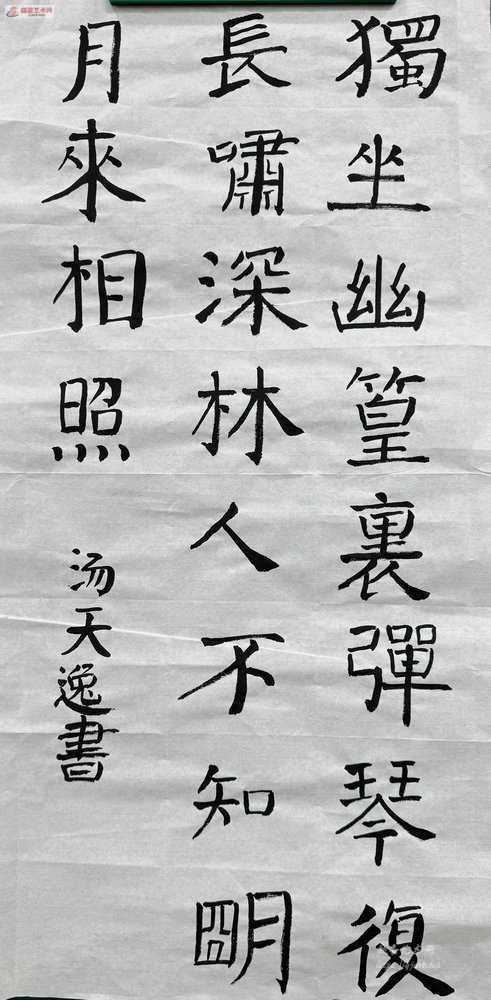 獨坐幽篁裏彈琴復
長嘯深林人不知明
月來相照
汤天逸書